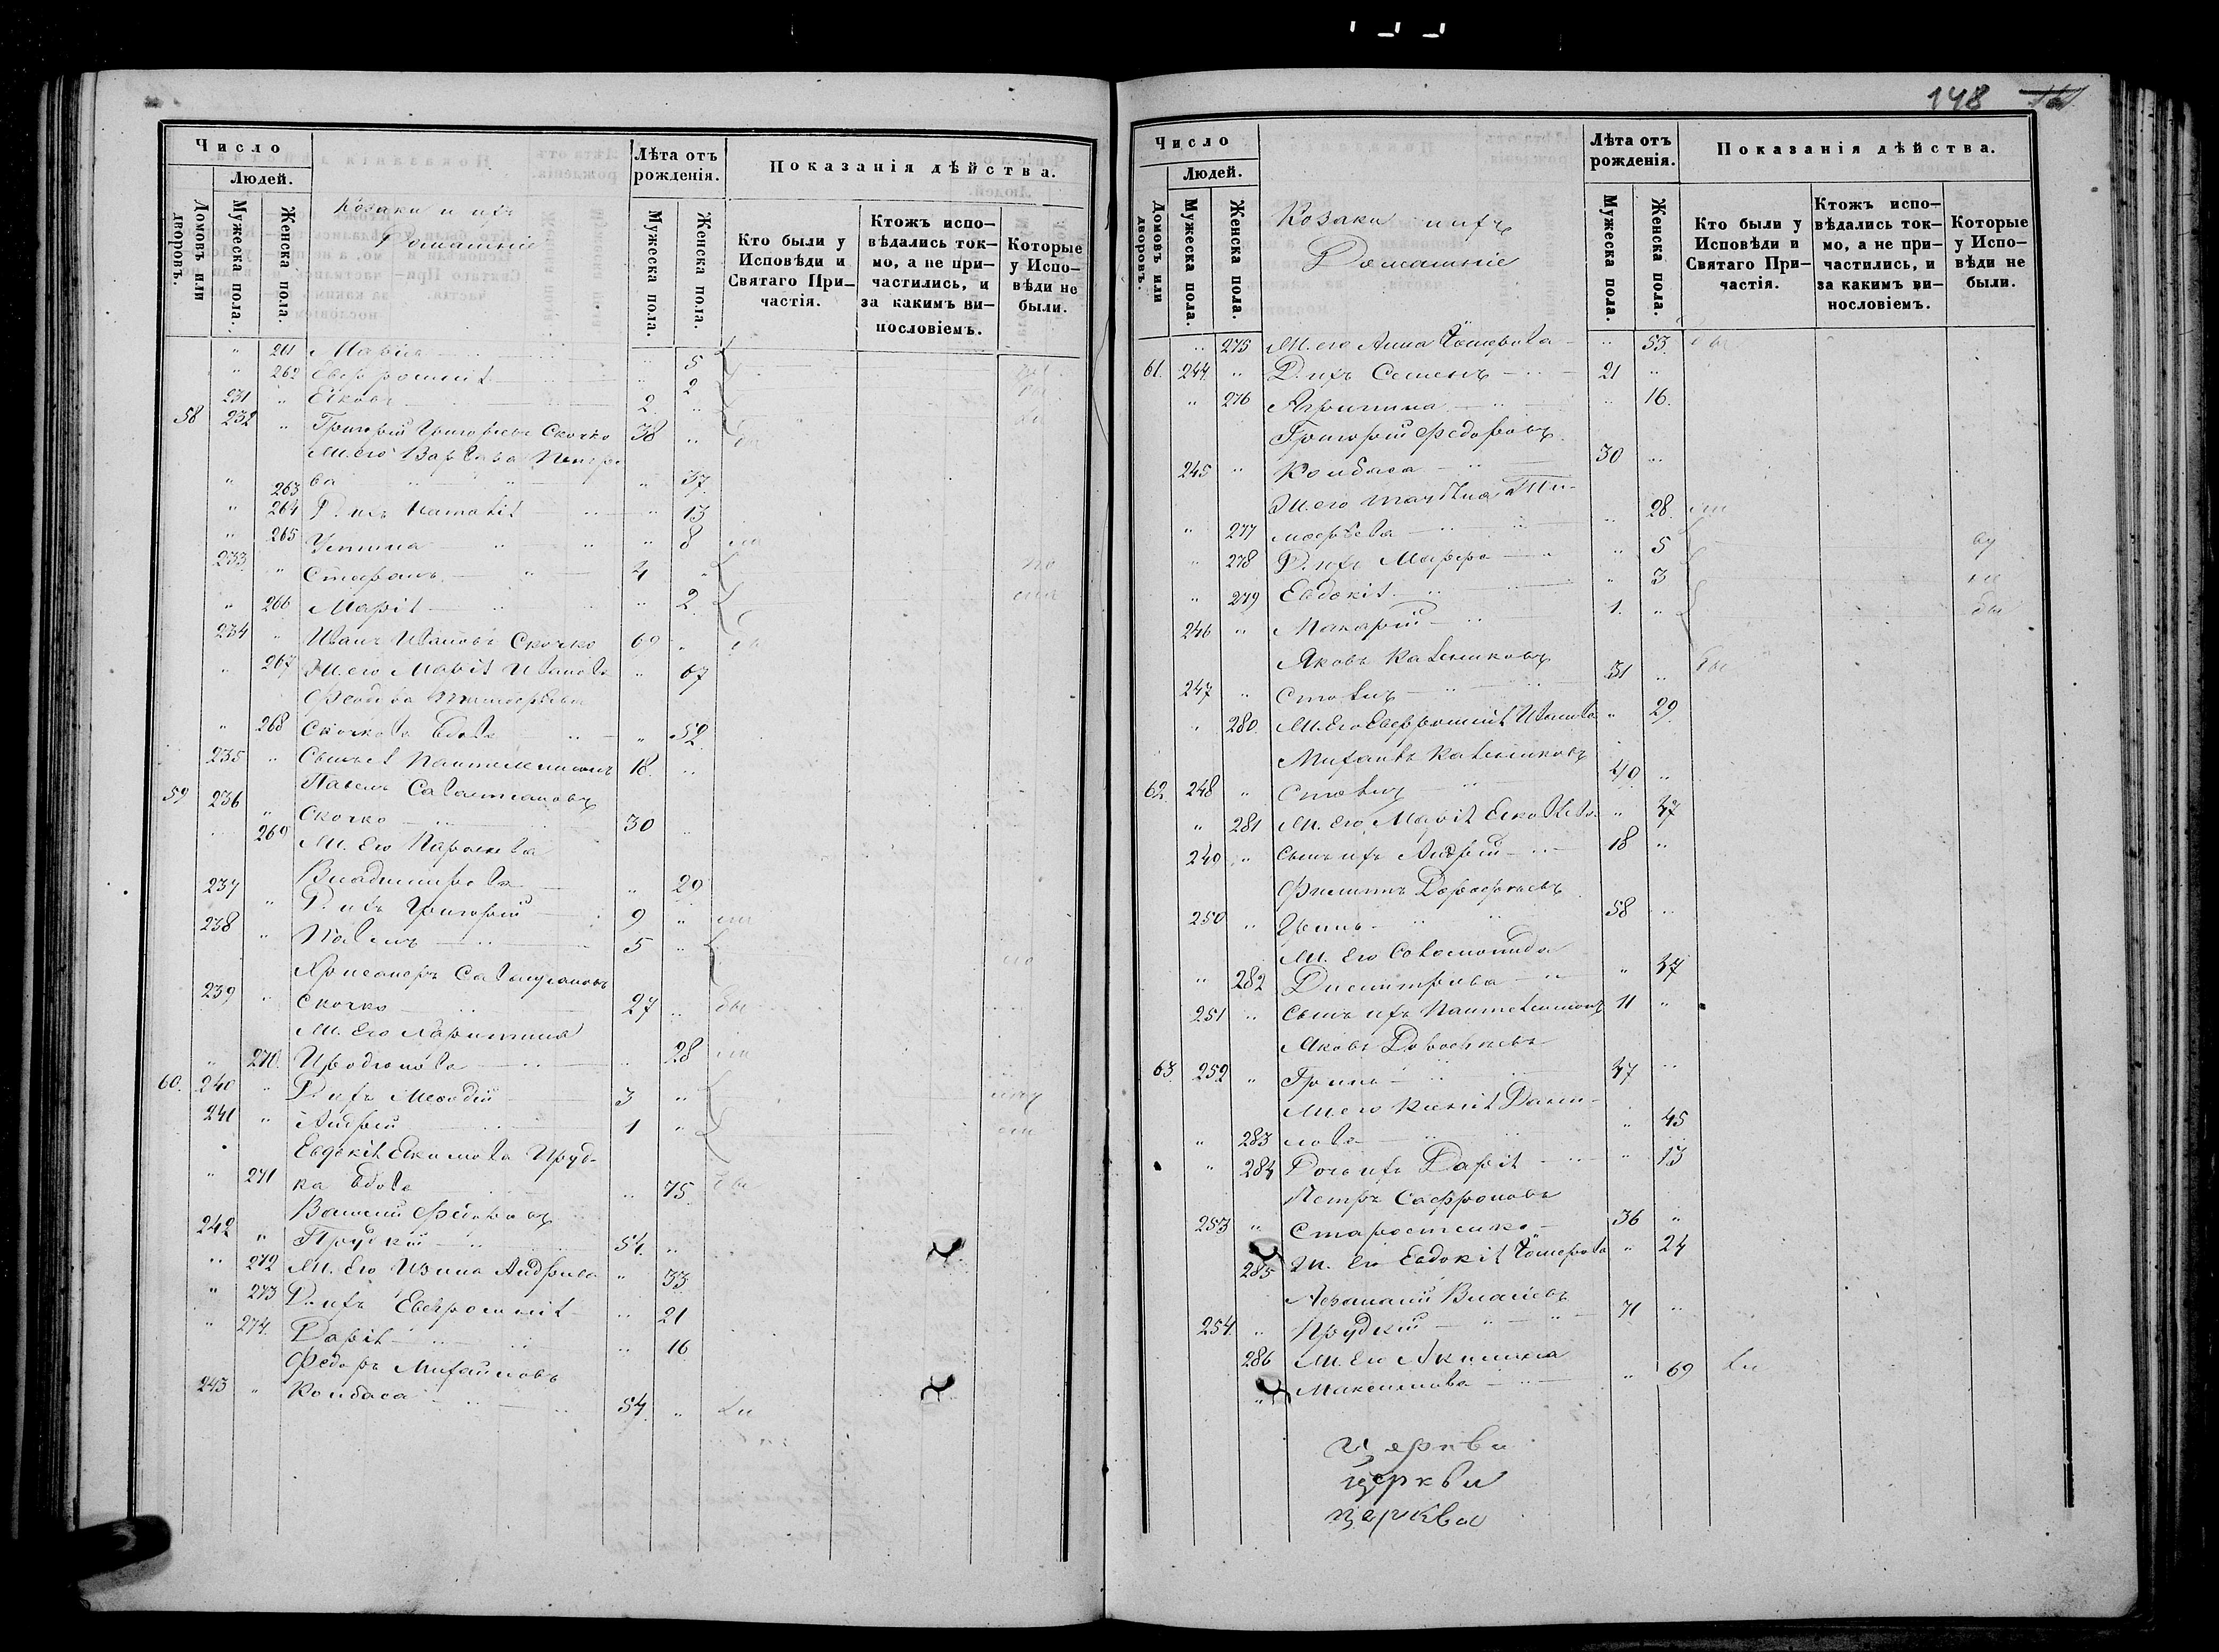 Число
Людей.
Домовъ или дворовъ.
Мужеска пола.
Женска пола.
Козаки и ихъ
Домашніе
Лѣта отъ рожденія.
Мужеска пола.
Женска пола.
Показанія дѣйства.
Кто были у Исповѣди и Святаго Причастія.
Ктожъ исповѣдались токмо, а не причастились, и за какимъ винословіемъ.
Которые у Исповѣди не были.
" 261 Марія " 5
" 262 Евфросинія " 2
231 " Яковъ 2 "
58 232 " Григорій Григорьевъ Скочко 38 " бы
Ж. его Варвара Петро
" 263 ва " 37
" 264 Д. ихъ Наталія " 13
" 265 Устина " 8
233 " Стефанъ 4 "
" 266 Марія " 2
234 " Иванъ Ивановъ Скочко 69 "
" 267 Ж. его Марія Иванова " 67
" 268 Скочкова вдова " 52
235 " Сынъ ея Пантелимонъ 18 "
Павелъ Савастіановъ
59 236 " Скочко 30 "
269 Ж. его Параскева
Владимирова " 29
237 " Д. ихъ Григорій 9 "
238 " Павелъ 5 "
239 " Скочко 27 " бы
Ж. Его
" 270. Иродіонова " 28
60. 240 " Д. ихъ 3 "
241 " Андрей 1 "
Евдокія Екимова Пруд-
" 271 ка вдова " 75 бы
Василій Федоровъ
242 " Прудкій 54. "
" 272 Ж. Его Ирина Андреева " 53
" 273 Д. ихъ Евфросинія " 21
" 274. Дарія " 16
Федоръ Михайловъ
243 " Колбаса 54. "
148
Число
Людей.
Домовъ или дворовъ.
Мужеска пола.
Женска пола.
Козаки и ихъ
Домашніе
Лѣта отъ рожденія.
Мужеска пола.
Женска пола.
Показанія дѣйства.
Кто были у Исповѣди и Святаго Причастія.
Ктожъ исповѣдались токмо, а не причастились, и за какимъ винословіемъ.
Которые у Исповѣди не были.
" 275 Ж. его Анна " 53. бы
61. 244 " Д. ихъ Семенъ 21 "
" 276 Агрипина " 16.
Григорій Федоровъ
245 " Колбаса 30 "
Ж. его Татіана Ти-
" 277 мофѣева " 28
" 278 Д. ихъ Марфа " 5
" 279 Евдокія " 3
246 " Макарій 1. "
Яковъ Калениковъ
247 " 31 " бы
" 280. Ж. Его Евфросинія Иванова " 29.
Михаилъ Калениковъ
62. 248 " 40 "
" 281 Ж. Его Марія Яковлева " 47
249 " Сынъ ихъ Андрей 18 "
Филиппъ Дорофѣевъ
250 " Гринь 58 "
Ж. Его Соломонида
" 282 Дмитріева " 47
251 " Сынъ ихъ Пантелимонъ 11 "
Яковъ Дорофѣевъ
63. 252 " Гринь 47 "
Ж. его Ксенія Дани-
" 283 лова " 45
" 284 Дочь ихъ Дарія " 13
Петръ Сафроновъ
253 " Старостенко 36 "
285 Ж. Его Евдокія " 24
Афанасій Власіевъ
254. " Прудкій 71 "
286 Ж. Его Акилина
" Максимова " 69
Церкви
церкви
церкви